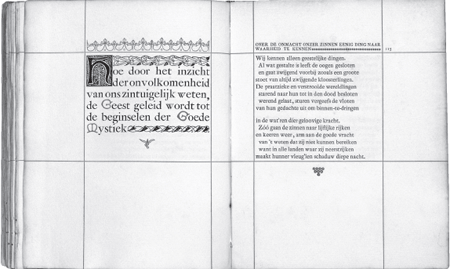 Hoe door het inzicht
der onvolkomenheid
van ons zintuigelijk weten,
de Geest geleid wordt tot
de beginselen der Goede
Mystiek
OVER DE ONMACHT ONZER ZINNEN EENIG DING NAAR
WAARHEID TE KENNEN
Wij kennen alleen geestelijke dingen.
Al wat gestalte is leeft de oogen gesloten
en gaat zwijgend voorbij zooals een groote
stoet van altijd zwijgende kloosterlingen.
De prachtzieke en versteende wereldlingen
starend naar hun tot in den dood besloten
werend gelaat, staren vergeefs de vloten
van hun gedachts uit om binnen-te-dringen
in de wat'ren dier geloovige kracht.
Zóó gaan de zinnen naar lijflijke rijken
en keeren weer, arm aan de goede vracht
van 't weten dat zij niet kunnen bereiken
want in alle landen waar zij neerstrijken
maakt hunner vleug'len schaduw diepe nacht.